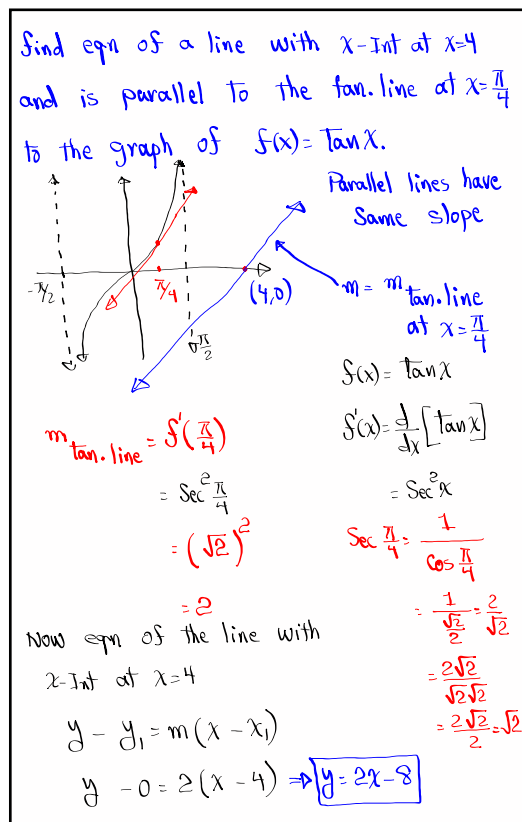 find eqn of a line with x-Int at x=4
and is parallel to the tan. line at x=π/4
to the graph of f(x)=Tanx.
Parallel lines have
Same slope
-π/2
π/4
(4,0)
π/2
m = m tan. line
at x=π/4
f(x)=Tanx
f'(x)=d/dx[Tanx]
= Sec²x
m tan. line = f'(π/4)
= Sec² π/4
= (√2)²
= 2
Sec π/4 = 1/cos π/4
= 1/(√2/2) = 2/√2
= 2√2/√2√2
= 2√2/2 = √2
Now eqn of the line with
x-Int at x=4
y - y₁ = m(x - x₁)
y - 0 = 2(x - 4) ⇒ y = 2x - 8